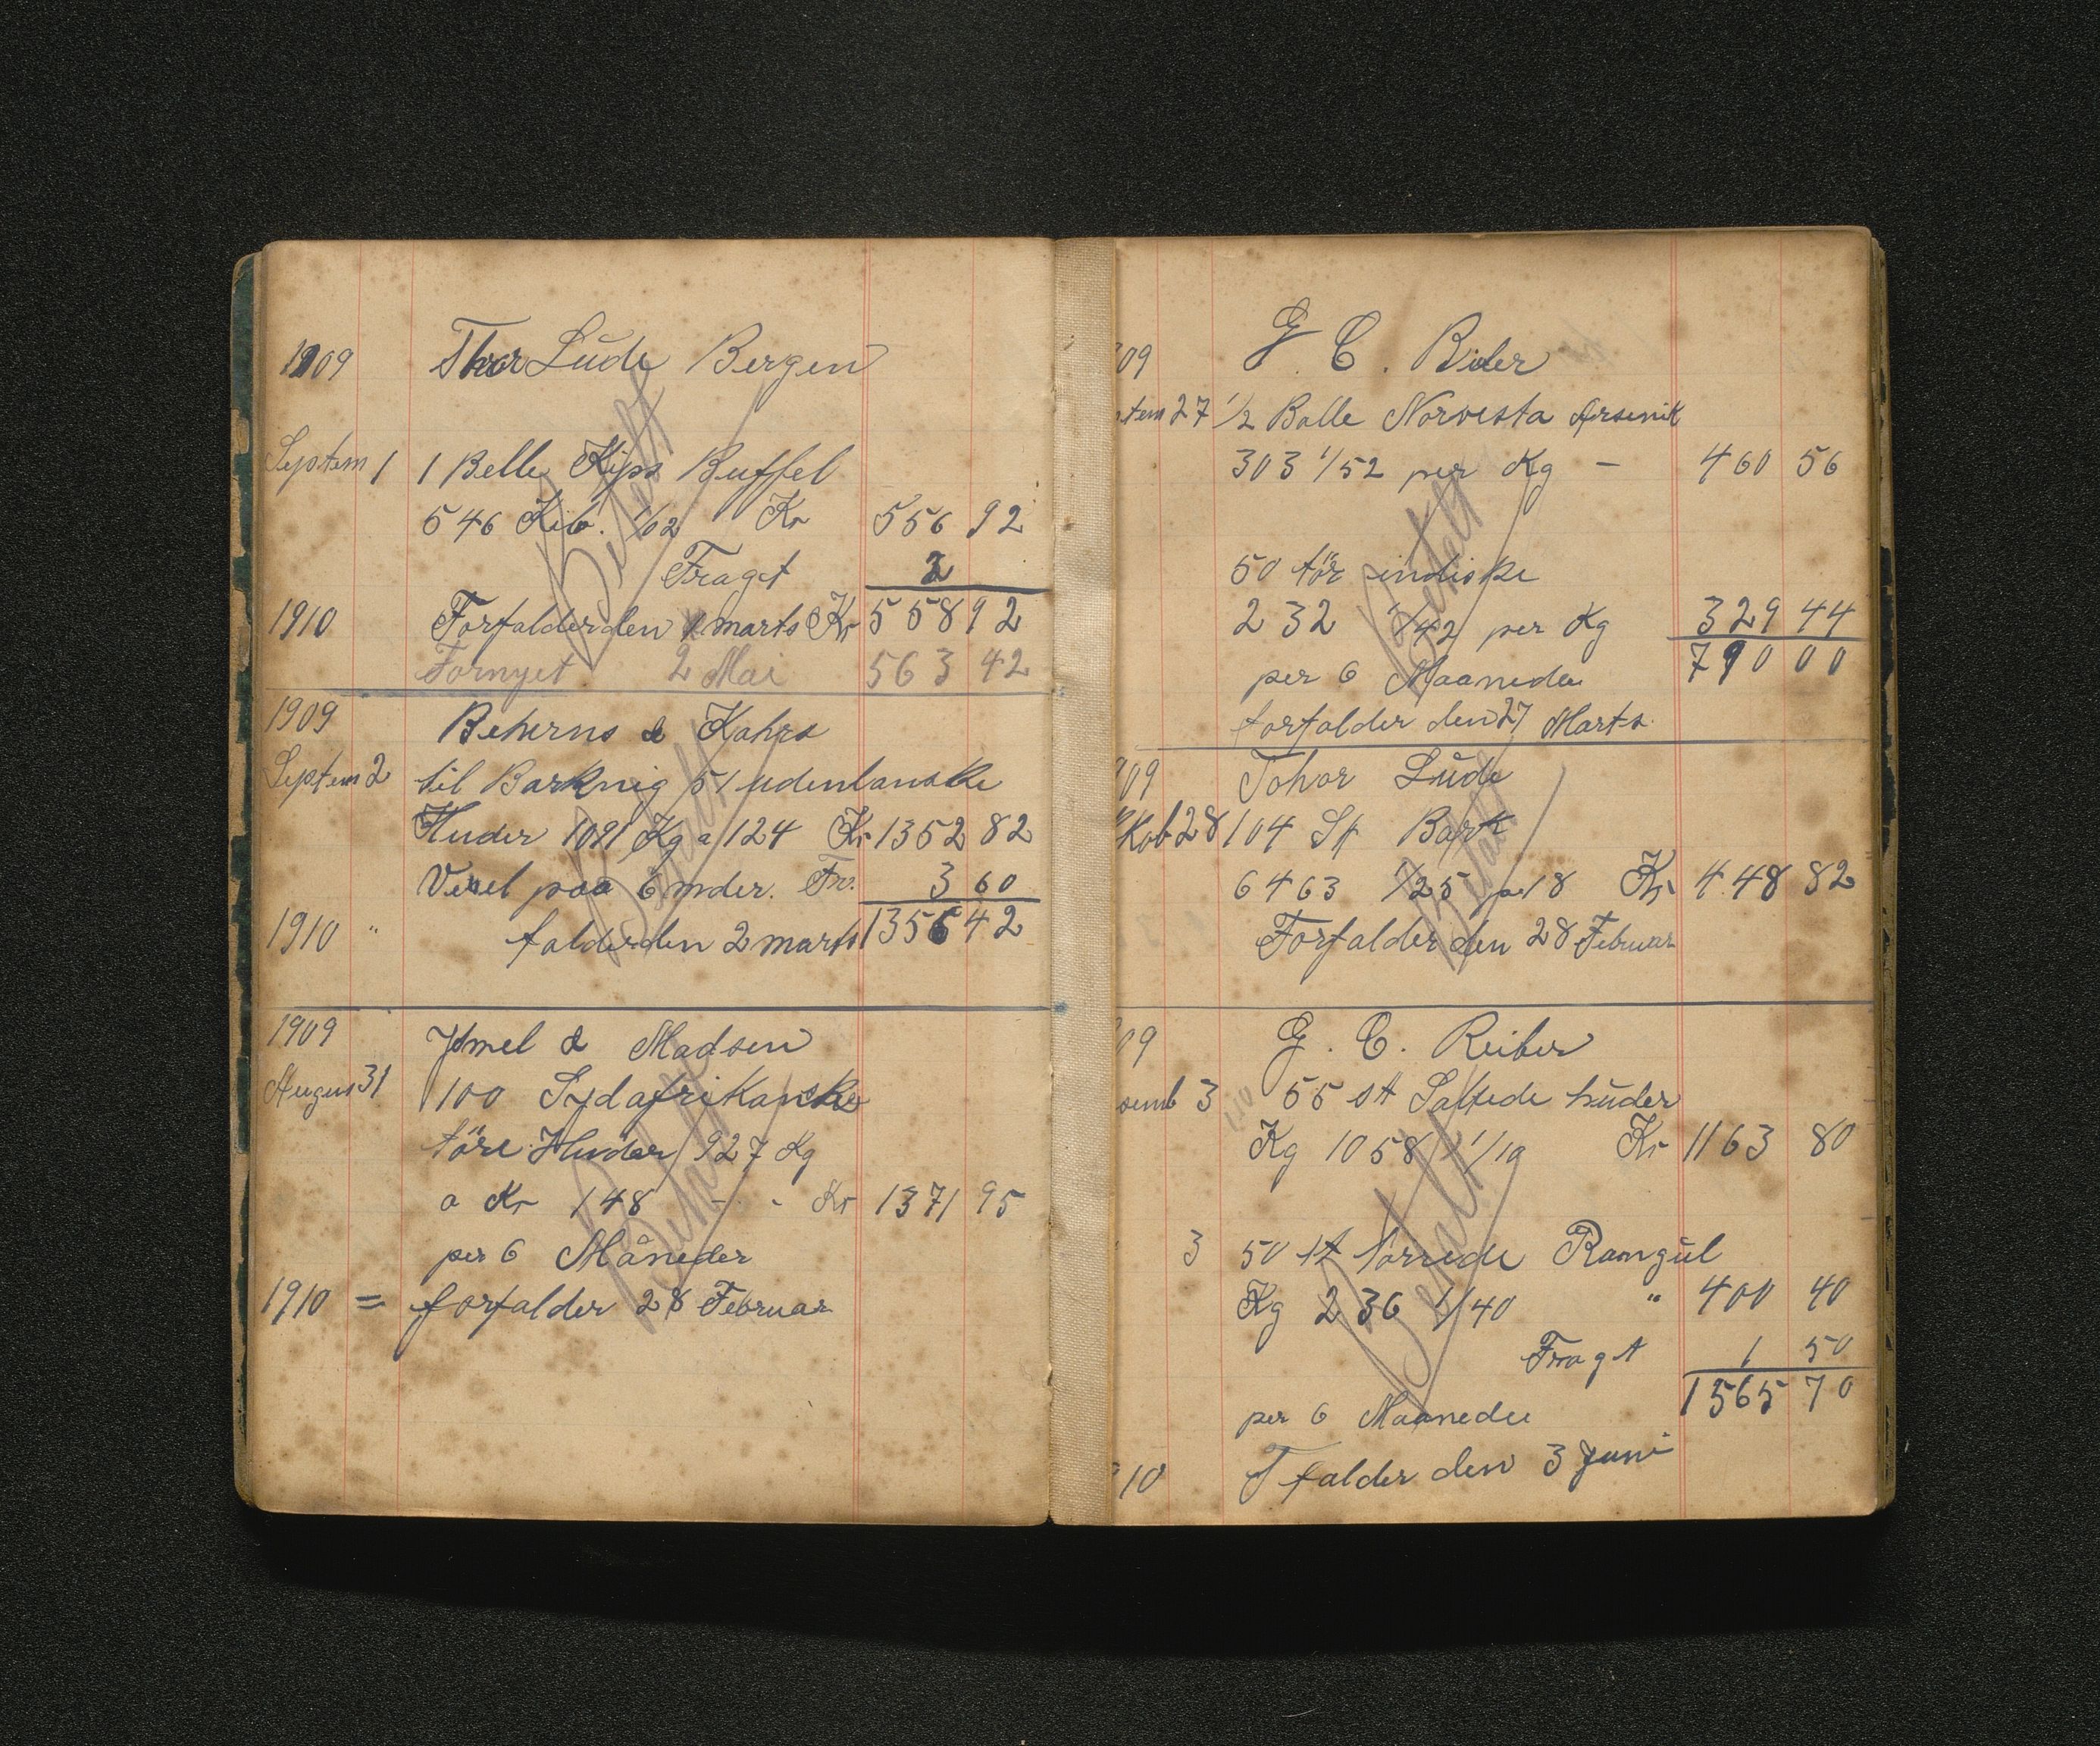 1909 Thor Lüde Bergen
Septem 1 1 Belle Kips Buffel
546 Kilo. 1/02 Kr 556 92
Fragt 2
1910 Forfalder den 1 marts Kr 558 92
Fornyet 2 Mai 563 42
1909 Beherns & Kahrs
Septem 2 til Barknig 51 udenlanske
Huder 1091 Kg a 124 Kr 1352 82
Vexel paa 6 mder. Fr. 3 60
1910 " falder den 2 marts 1356 42
1909 Ismel & Madsen
Augus 31 100 Sydafrikanske
töre Huder 927 Kg
a Kr 148 - - Kr 1371 95
per 6 Måneder
1910 = forfalder 28 Februar
Betalt
Betalt
Betalt
09 G. C. Rieber
tem 27 1/2 Balle Norvesta Arsenik
303 1/52 per Kg - 460 56
50 tör indiske
232 1/42 per Kg 329 44
790 00
per 6 Maaneder
forfalder den 27 Marts.
09 Tohor Lüde
Kob 28 104 St Bark
6463 1/25 pr 18 Kr 448 82
Forfalder den 28 Februar
09 G. C. Reiber
semb 3 55 st Saltede hüder
Kg 1058 1/10 Kr 1163 80
3 50 st törrede Rangül
Kg 236 1/40 " 400 40
Fragt 1 50
1565 70
per 6 Maaneder
10 falder den 3 Juni
Betalt
Betalt
Betalt